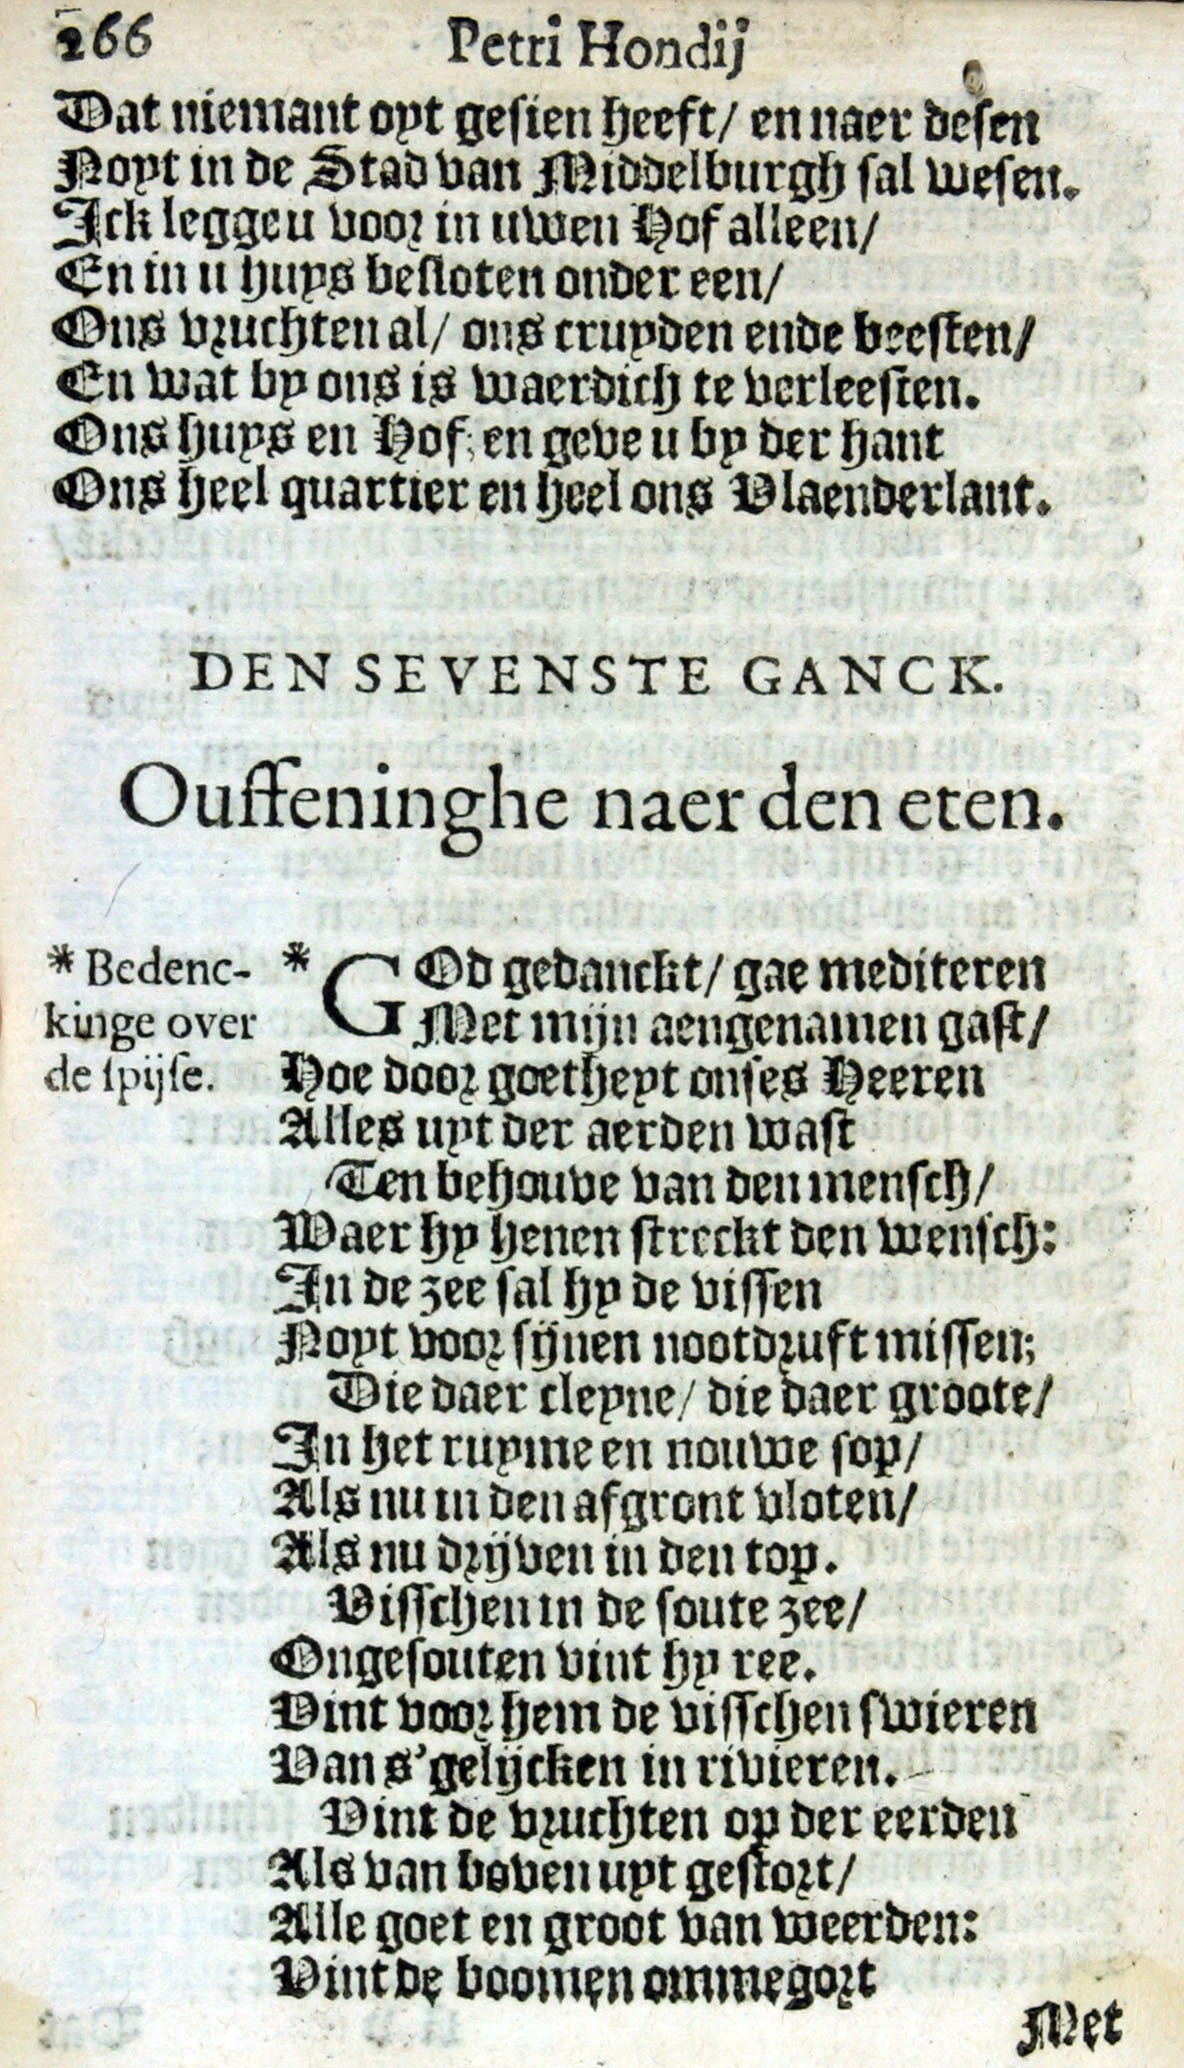 266 Petri Hondij
Dat niemant oyt gesien heeft/ en naer desen
Noyt in de Stad van Middelburgh sal wesen.
Ick legge u voor in uwen Hof alleen/
En in u huys besloten onder een/
Ons vruchten al/ ons cruyden ende beesten/
En wat by ons is waerdich te verleesten.
Ons huys en Hof; en geve u by der hant
Ons heel quartier en heel ons Vlaenderlant.
DEN SEVENSTE GANCK.
Ouffeninghe naer den eten.
* Bedenc-
kinge over
de spijse.
* GOd gedanckt/ gae mediteren
Met mijn aengenamen gast/
Hoe door goetheyt onses Heeren
Alles uyt der aerden wast
Ten behouve van den mensch/
Waer hy henen streckt den wensch:
In de zee sal hy de vissen
Noyt voor sijnen nootdruft missen;
Die daer cleyne/ die daer groote/
In het ruyme en nouwe sop/
Als nu in den afgront vloten/
Als nu drijven in den top.
Visschen in de soute zee/
Ongesouten vint hy ree.
Vint voor hem de visschen swieren
Van s'gelijcken in rivieren.
Vint de vruchten op der eerden
Als van boven uyt gestort/
Alle goet en groot van weerden:
Vint de boomen ommegort
Met